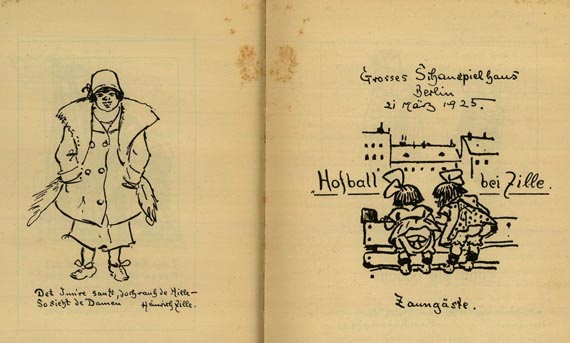 Det Inn're sanft, doch rauh de Hille –
So sieht de Damen Heinrich Zille.
Grosses Schauspielhaus
Berlin
21 März 1925.
„Hofball" bei Zille.
Zaungäste.